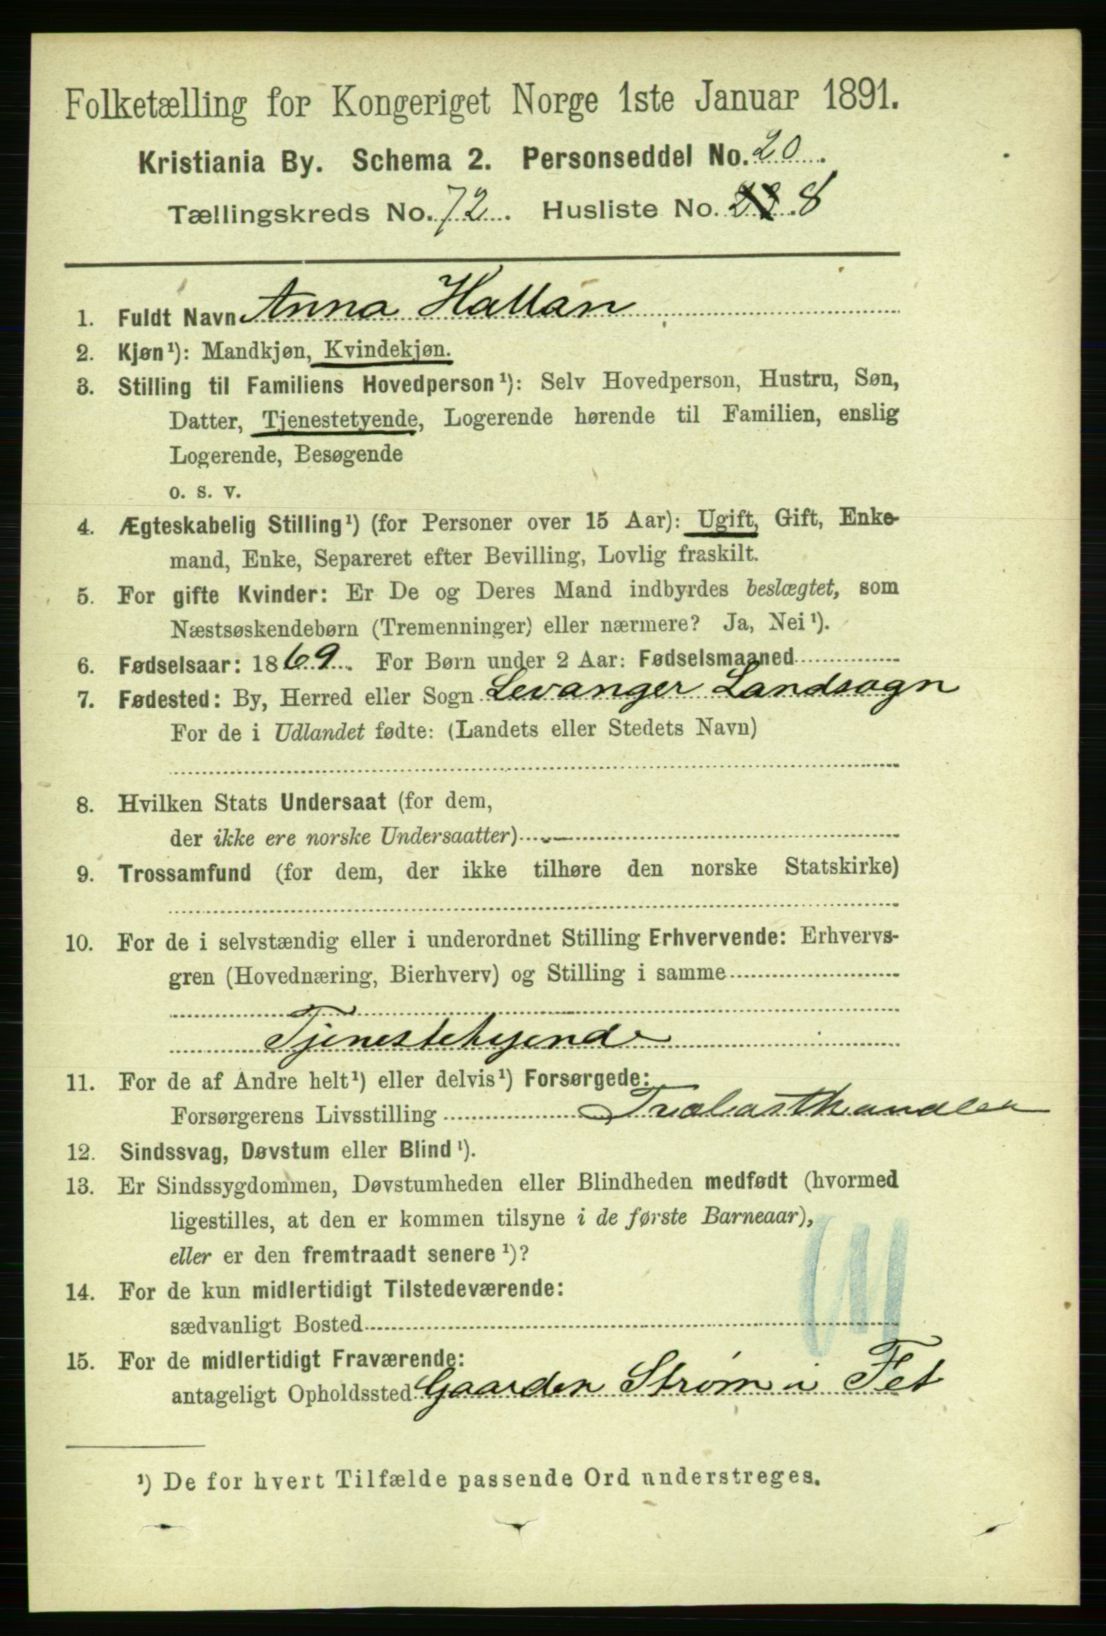 Folketælling for Kongeriget Norge 1ste Januar 1891.
Kristiania By. Schema 2. Personseddel No. 20.
Tællingskreds No. 72. Husliste No. 8
1. Fuldt Navn Anna Hallan
2. Kjøn¹): Mandkjøn, Kvindekjøn.
3. Stilling til Familiens Hovedperson¹): Selv Hovedperson, Hustru, Søn,
Datter, Tjenestetyende, Logerende hørende til Familien, enslig
Logerende, Besøgende
o. s. v.
4. Ægteskabelig Stilling¹) (for Personer over 15 Aar): Ugift, Gift, Enke-
mand, Enke, Separeret efter Bevilling, Lovlig fraskilt.
5. For gifte Kvinder: Er De og Deres Mand indbyrdes beslægtet, som
Næstsøskendebørn (Tremenninger) eller nærmere? Ja, Nei¹).
6. Fødselsaar: 1869. For Børn under 2 Aar: Fødselsmaaned
7. Fødested: By, Herred eller Sogn Levanger Landsogn
For de i Udlandet fødte: (Landets eller Stedets Navn)
8. Hvilken Stats Undersaat (for dem,
der ikke ere norske Undersaatter)
9. Trossamfund (for dem, der ikke tilhøre den norske Statskirke)
10. For de i selvstændig eller i underordnet Stilling Erhvervende: Erhvervs-
gren (Hovednæring, Bierhverv) og Stilling i samme
Tjenestetyende
11. For de af Andre helt¹) eller delvis¹) Forsørgede:
Forsørgerens Livsstilling Trælasthandler
12. Sindssvag, Døvstum eller Blind¹).
13. Er Sindssygdommen, Døvstumheden eller Blindheden medfødt (hvormed
ligestilles, at den er kommen tilsyne i de første Barneaar),
eller er den fremtraadt senere¹)?
14. For de kun midlertidigt Tilstedeværende:
sædvanligt Bosted
15. For de midlertidigt Fraværende:
antageligt Opholdssted Gaarden Strøm i Fet
¹) De for hvert Tilfælde passende Ord understreges.